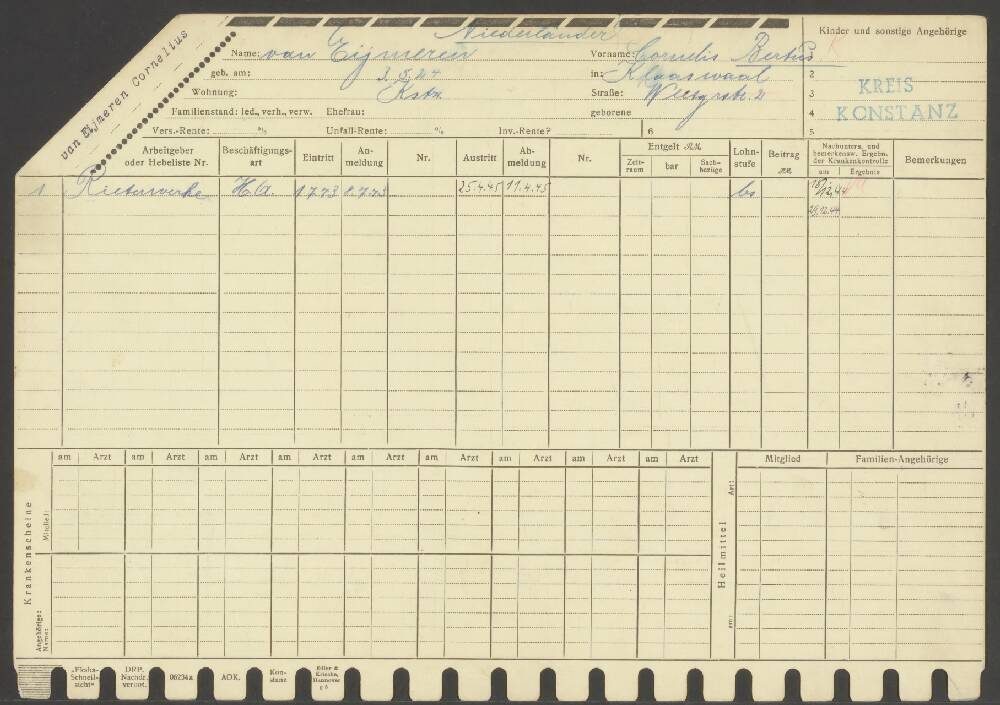 van Eijmeren Cornelius
Niederländer
Name: van Eijmeren Vorname: Cornelis Bertus
Kinder und sonstige Angehörige
geb. am: 3.5.24 in: Klaaswaal
Wohnung: Kstz. Straße: 2
Familienstand: led., verh., verw. Ehefrau: geborene
Vers.-Rente: % Unfall-Rente: % Inv.-Rente? 6
1
2
3
4
5
KREIS
KONSTANZ
Arbeitgeber oder Hebeliste Nr. Beschäftigungsart Eintritt Anmeldung Nr. Austritt Abmeldung Nr. Entgelt RM Zeitraum bar Sachbezüge Lohnstufe Beitrag RM Nachunters. und bemerkensw. Ergebn. der Krankenkontrolle am Ergebnis Bemerkungen
1 Rieterwerke H.A. 1.7.43 25.4.45 11.4.45
29.12.44
Krankenscheine
Mitglied:
Angehörige: Name:
am Arzt am Arzt am Arzt am Arzt am Arzt am Arzt am Arzt am Arzt am Arzt
Heilmittel
Art:
am:
Mitglied Familien-Angehörige
„Ekaha-Schnellsicht“ DRP. Nachdr. verbot. 06234a AOK. Konstanz Edler & Krische, Hannover